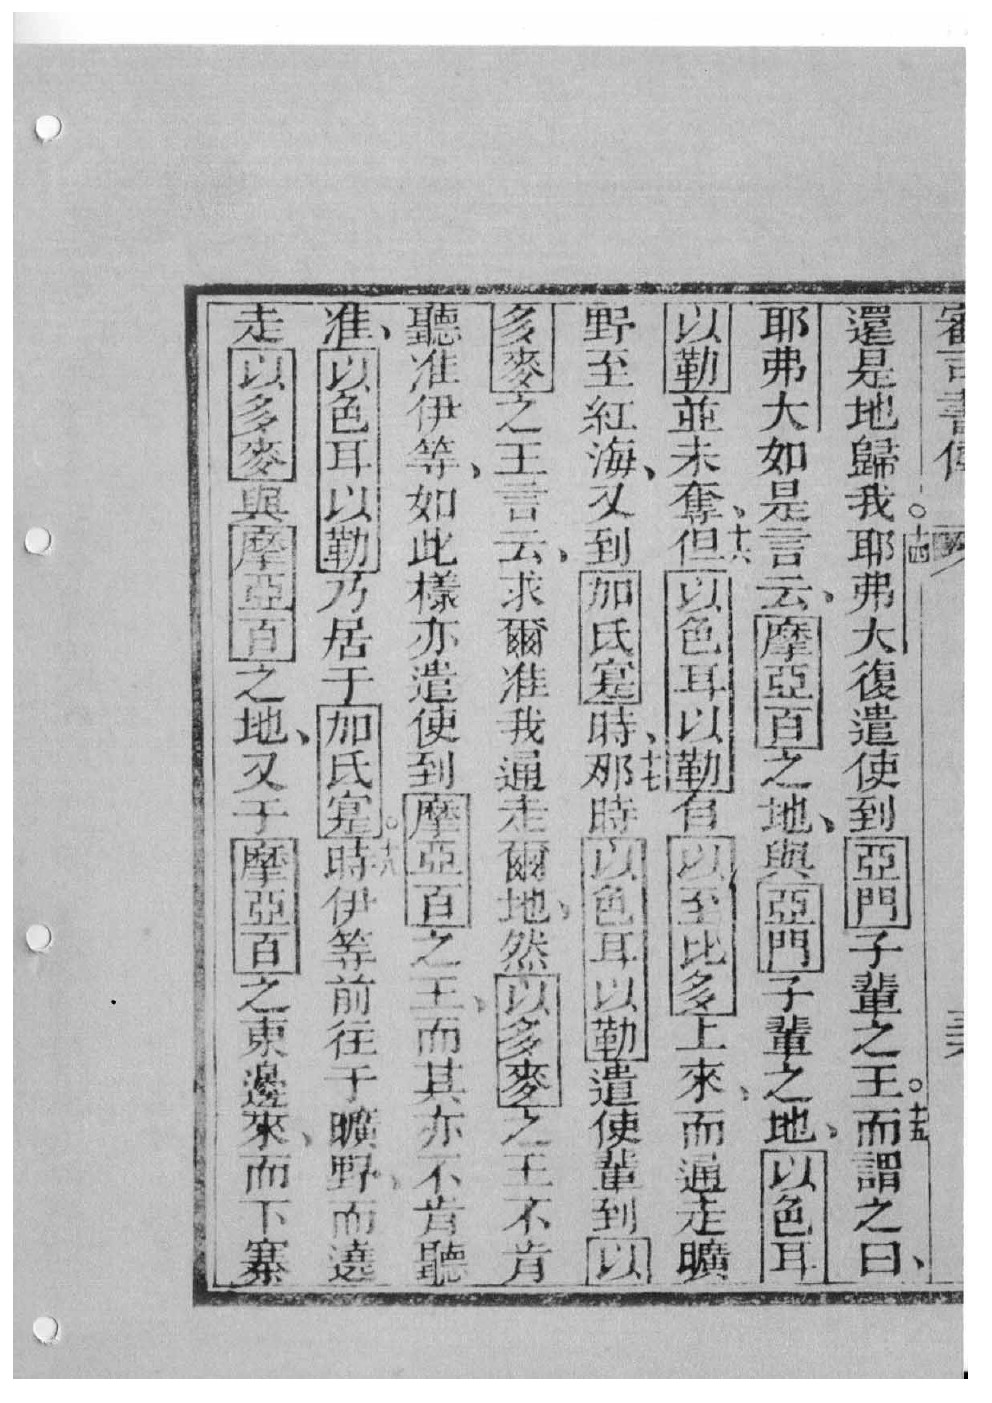 審司書傳 三六
還是地歸我。十四耶弗大復遣使到亞門子輩之王。十五而謂之曰、
耶弗大如是言云、摩亞百之地、與亞門子輩之地、以色耳
以勒並未奪、十六但以色耳以勒自以至比多上來、而通走曠
野至紅海、又到加氏寔時、十七那時以色耳以勒遣使輩到以
多麥之王言云、求爾准我通走爾地、然以多麥之王不肯
聽准伊等、如此樣亦遣使到摩亞百之王、而其亦不肯聽
准、以色耳以勒乃居于加氏寔。十八時伊等前往于曠野、而遶
走以多麥與摩亞百之地、又于摩亞百之東邊來、而下寨